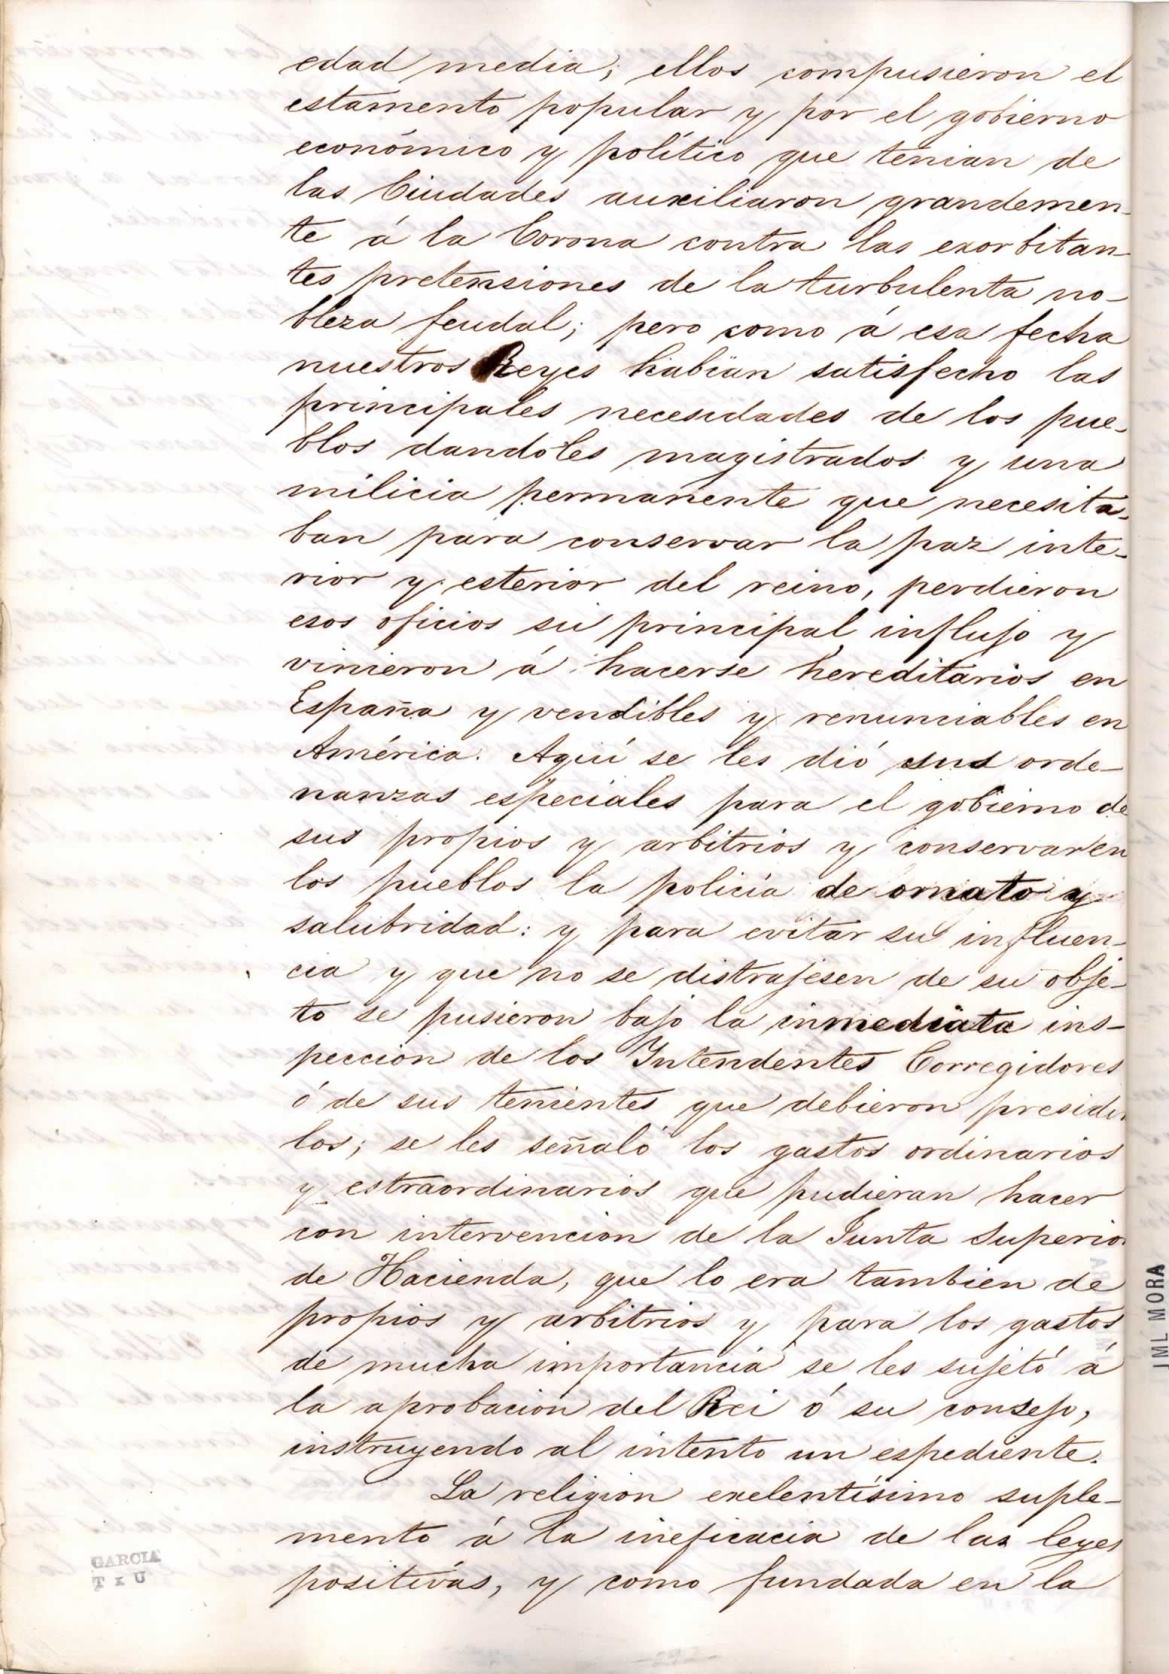 edad media; ellos compusieron el
estamento popular y por el gobierno
económico y político que tenian de
las Ciudades auxiliaron grandemen-
te á la Corona contra las exorbitan-
tes pretensiones de la turbulenta no-
bleza feudal; pero como á esa fecha
nuestros Reyes habian satisfecho las
principales necesidades de los pue-
blos dandoles magistrados y una
milicia permanente que necesita-
ban para conservar la paz inte-
rior y esterior del reino, perdieron
esos oficios su principal influjo y
vinieron á hacerse hereditarios en
España y vendibles y renunciables en
América. Aquí se les dió sus orde-
nanzas especiales para el gobierno de
sus propios y arbitrios y conservar en
los pueblos la policía de ornato y
salubridad: y para evitar su influen-
cia y que no se distrajesen de su obje-
to se pusieron bajo la inmediata ins-
peccion de los Intendentes Corregidores
ó de sus tenientes que debieron presidir
los; se les señaló los gastos ordinarios
y estraordinarios que pudieran hacer
con intervencion de la Junta Superior
de Hacienda, que lo era tambien de
propios y arbitrios y para los gastos
de mucha importancia se les sujetó á
la aprobacion del Rei ó su consejo,
instruyendo al intento un espediente.
La religion exelentísimo suple-
mento á la ineficacia de las leyes
positivas, y como fundada en la
GARCIA
T x U
IML MORA